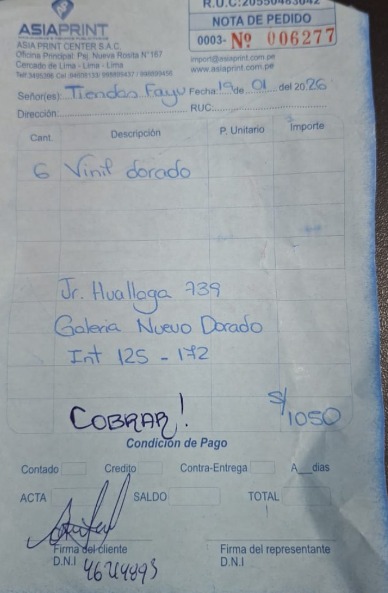 R.U.C:20550483042
ASIAPRINT
ASIA PRINT CENTER S.A.C.
NOTA DE PEDIDO
Oficina Principal: Psj. Nueva Rosita N°167
Cercado de Lima - Lima - Lima
0003- Nº 006277
import@asiaprint.com.pe
www.asiaprint.com.pe
Señor(es): Tiendas Fayu Fecha 19 de 01 del 2026
Dirección: RUC:
Cant. Descripción P. Unitario Importe
6 Vinil dorado
Jr. Huallaga 739
Galeria Nuevo Dorado
Int 125 - 172
COBRAR! S/1050
Condición de Pago
Contado Credito Contra-Entrega A___dias
ACTA SALDO TOTAL
Firma del cliente Firma del representante
D.N.I D.N.I